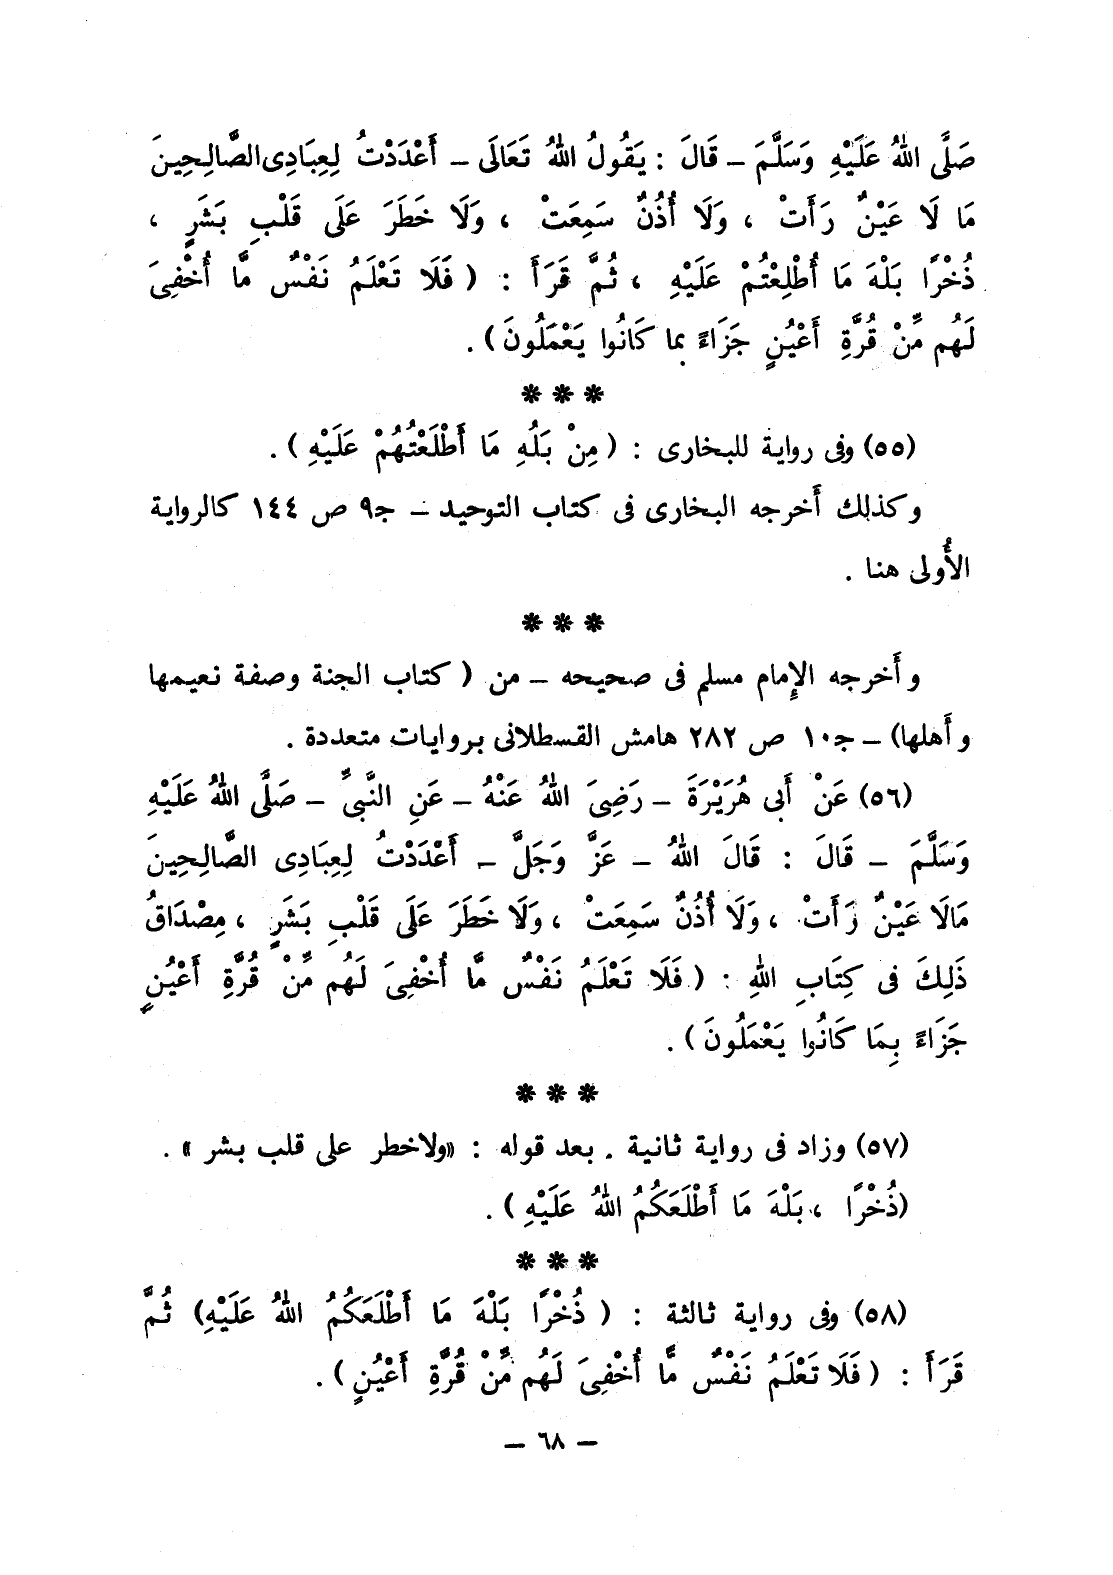 صَلَّى اللهُ عَلَيْهِ وَسَلَّمَ – قَالَ : يَقُولُ اللهُ تَعَالَى – أَعْدَدْتُ لِعِبَادِى الصَّالِحِينَ
مَا لَا عَيْنٌ رَأَتْ ، وَلَا أُذُنٌ سَمِعَتْ ، وَلَا خَطَرَ عَلَى قَلْبِ بَشَرٍ ،
ذُخْرًا بَلْهَ مَا أُطْلِعْتُمْ عَلَيْهِ ، ثُمَّ قَرَأَ : ( فَلَا تَعْلَمُ نَفْسٌ مَّا أُخْفِىَ
لَهُم مِّنْ قُرَّةِ أَعْيُنٍ جَزَاءً بما كَانُوا يَعْمَلُونَ ) .
❋ ❋ ❋
(٥٥) وفى رواية للبخارى : ( مِنْ بَلُهِ مَا أَطْلَعْتُهُمْ عَلَيْهِ ) .
وكذلك أَخرجه البخارى فى كتاب التوحيد – جـ٩ ص ١٤٤ كالرواية
الأُولى هنا .
❋ ❋ ❋
وأَخرجه الإِمام مسلم فى صحيحه – من ( كتاب الجنة وصفة نعيمها
وأَهلها) – جـ١٠ ص ٢٨٢ هامش القسطلانى بروايات متعددة .
(٥٦) عَنْ أَبى هُرَيْرَةَ – رَضِىَ اللهُ عَنْهُ – عَنِ النَّبىِّ – صَلَّى اللهُ عَلَيْهِ
وَسَلَّمَ – قَالَ : قَالَ اللهُ – عَزَّ وَجَلَّ – أَعْدَدْتُ لِعِبَادِى الصَّالِحِينَ
مَالَا عَيْنٌ رَأَتْ ، وَلَا أُذُنٌ سَمِعَتْ ، وَلَا خَطَرَ عَلَى قَلْبِ بَشَرٍ ، مِصْدَاقُ
ذَلِكَ فى كِتَابِ اللهِ : ( فَلَا تَعْلَمُ نَفْسٌ مَّا أُخْفِىَ لَهُم مِّنْ قُرَّةِ أَعْيُنٍ
جَزَاءً بِمَا كَانُوا يَعْمَلُونَ ) .
❋ ❋ ❋
(٥٧) وزاد فى رواية ثانية . بعد قوله : «ولاخطر على قلب بشر » .
(ذُخْرًا ، بَلْهَ مَا أَطْلَعَكُمُ اللهُ عَلَيْهِ ) .
❋ ❋ ❋
(٥٨) وفى رواية ثالثة : ( ذُخْرًا بَلْهَ مَا أَطْلَعَكُمُ اللهُ عَلَيْهِ) ثُمَّ
قَرَأَ : ( فَلَا تَعْلَمُ نَفْسٌ مَّا أُخْفِىَ لَهُم مِّنْ قُرَّةِ أَعْيُنٍ ) .
– ٦٨ –